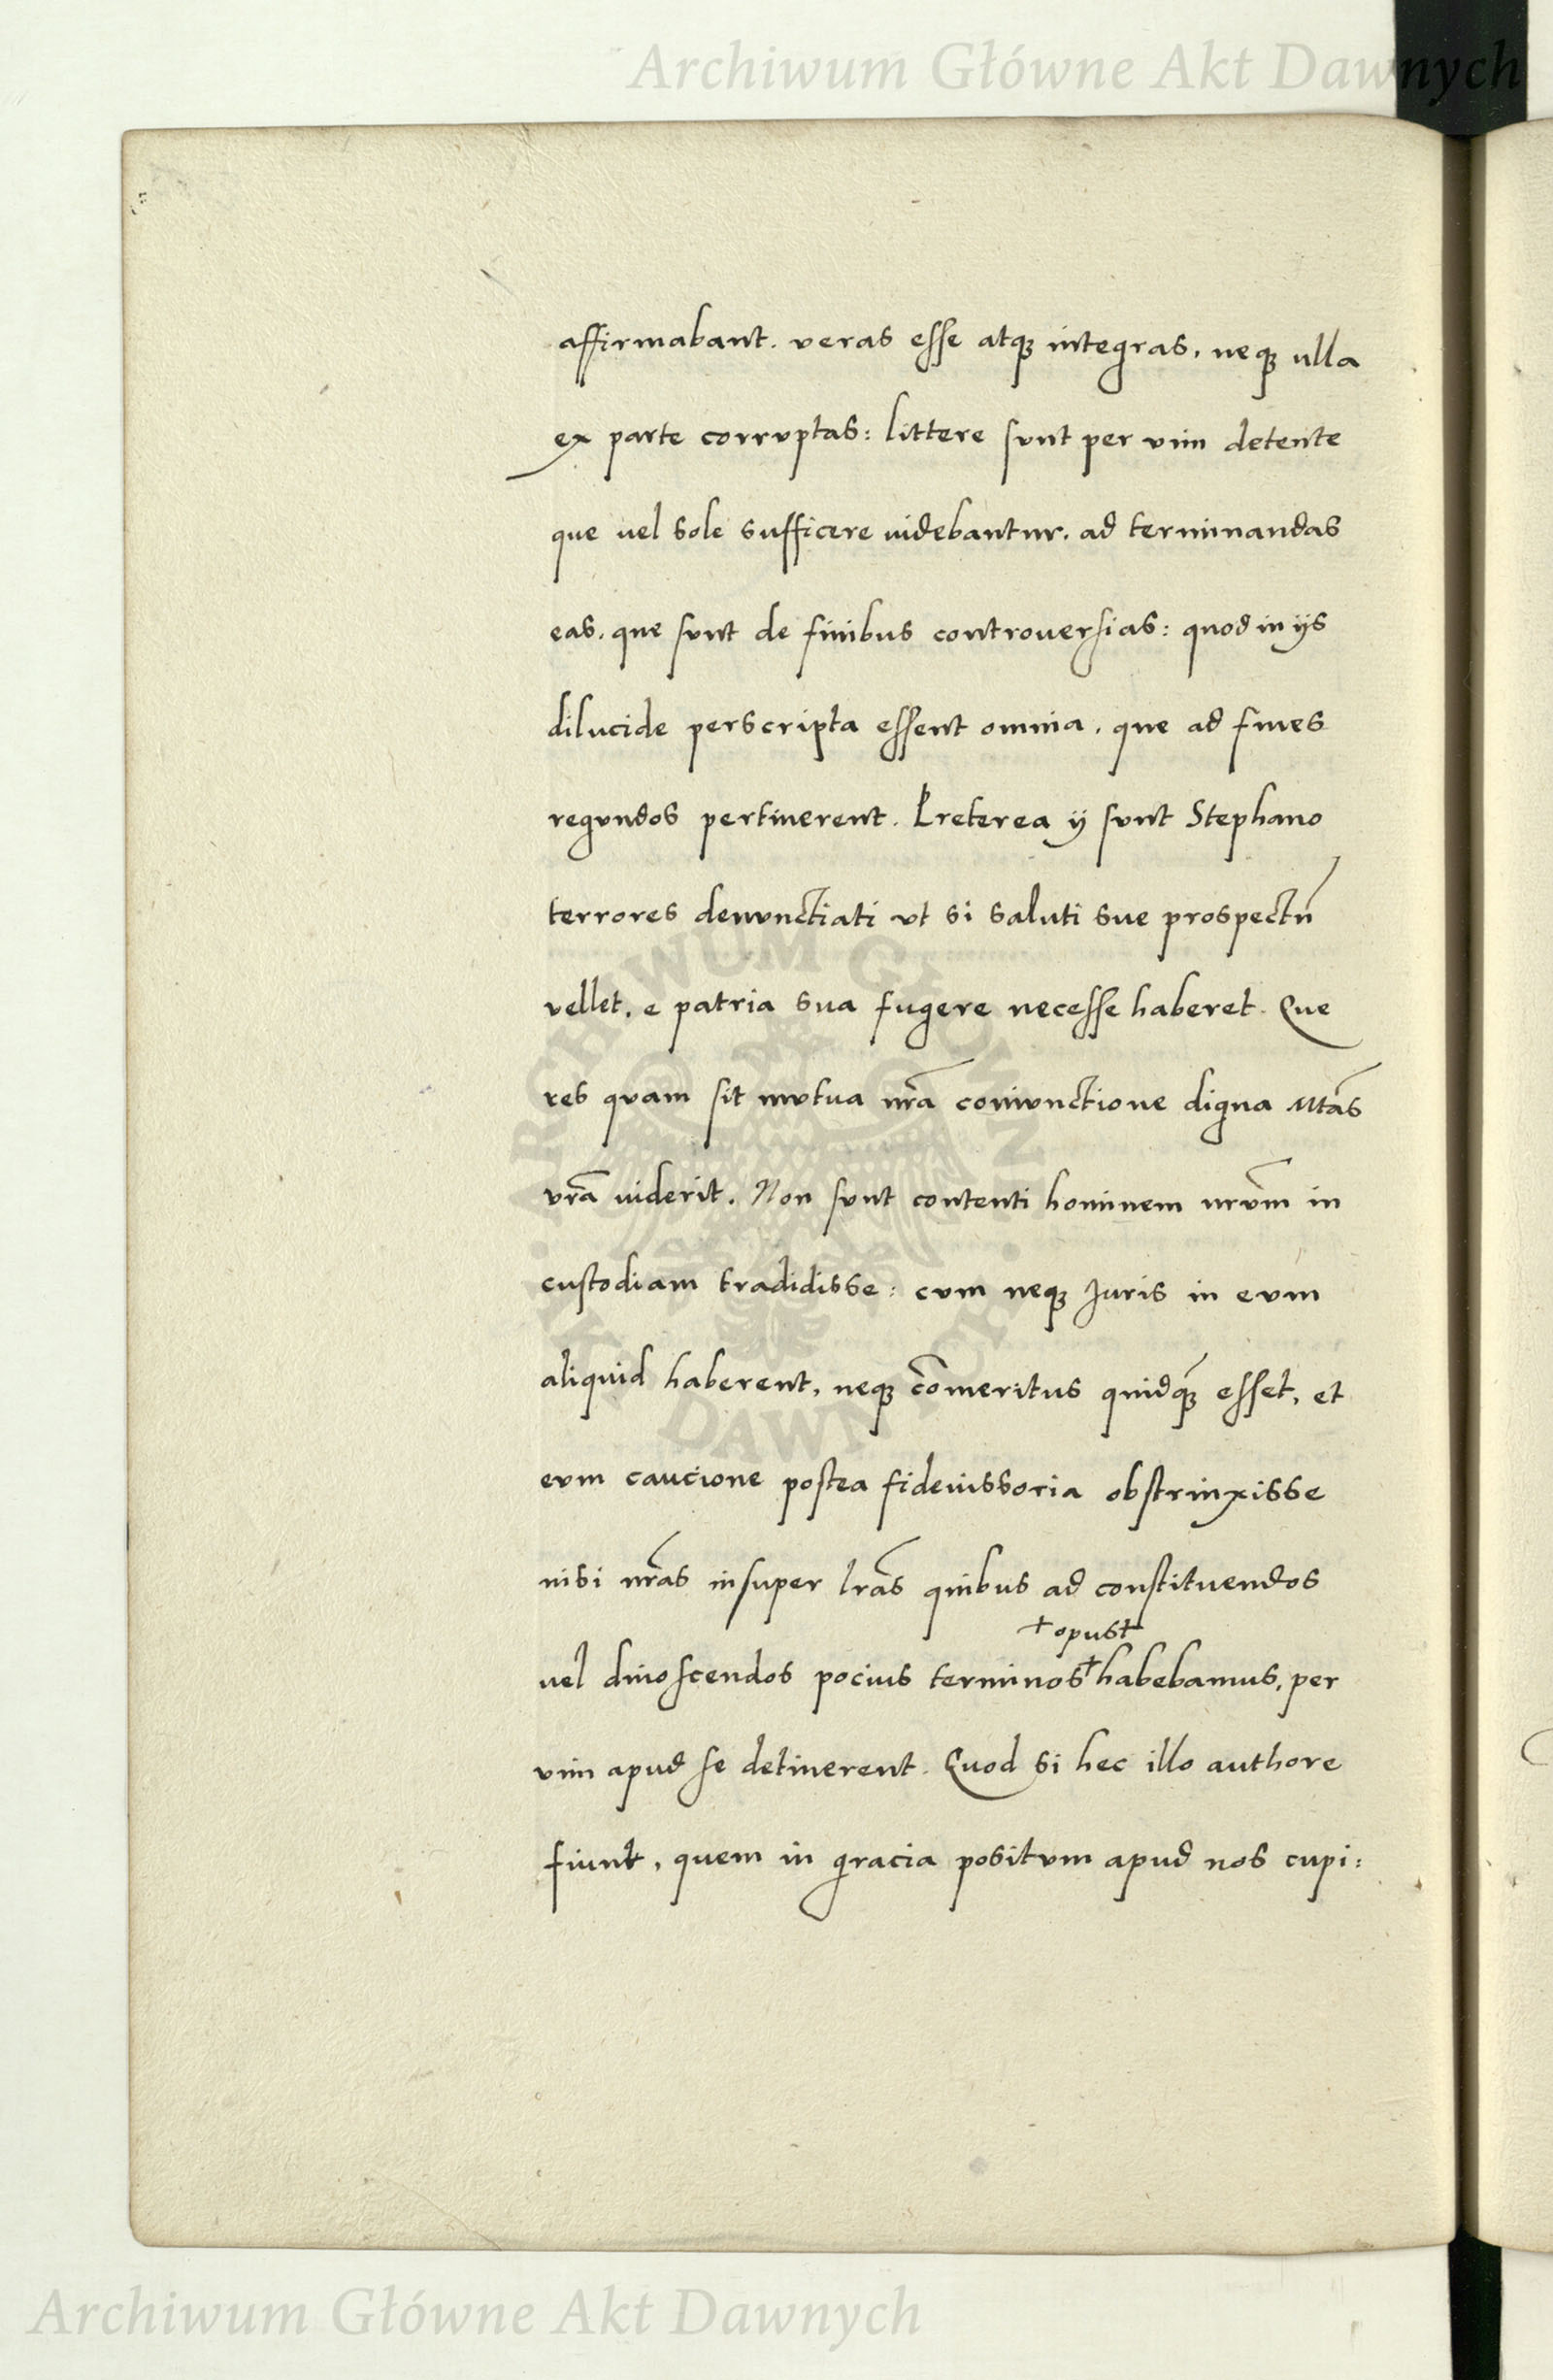 Archiwum Główne Akt Dawnych
affirmabant. veras esse atqꝫ integras, neqꝫ ulla
ex parte corruptas: littere sunt per vim detente
que vel sole sufficere videbantur, ad terminandas
eas, que sunt de finibus controversias: quod in iis
dilucide perscripta essent omnia, que ad fines
regundos pertinerent. Preterea ij sunt Stephano
terrores denunctiati ut si saluti sue prospectū
vellet, e patria sua fugere necesse haberet. Que
res quam sit mutua nrā coniunctione digna Mtās
vrā viderit. Non sunt contenti hominem nrūm in
custodiam tradidisse: cum neqꝫ Juris in eum
aliquid haberent, neqꝫ cōmeritus quidqꝫ̄ esset, et
eum caucione postea fideiussoria obstrinxisse
nisi nrās insuper lrās quibus ad constituendos
+ opus +
vel dinoscendos pocius terminos + habebamus, per
vim apud se detinerent. Quod si hec illo authore
fiunt, quem in gracia positum apud nos cupi:
ARCHIWUM GŁÓWNE AKT DAWNYCH
Archiwum Główne Akt Dawnych